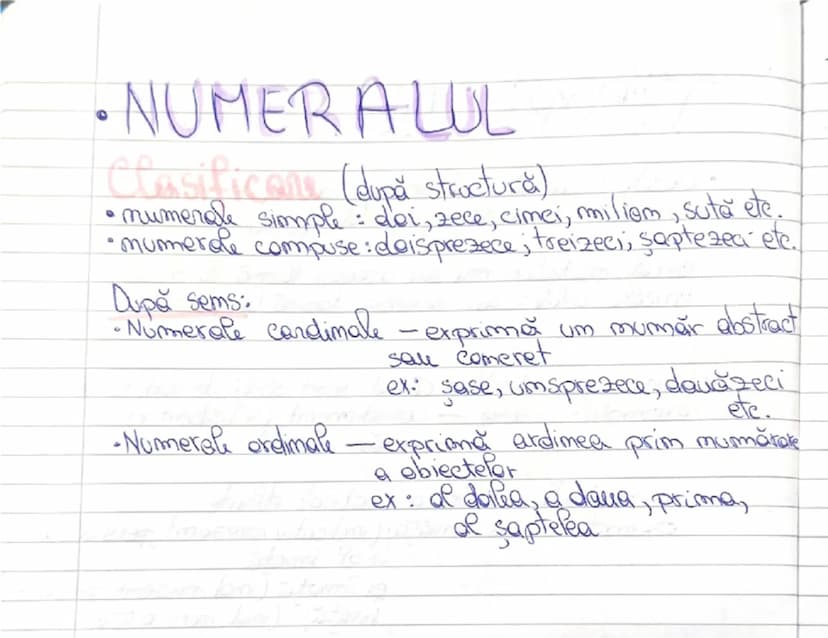 • NUMERALUL
Clasificare (după structură)
• numerale simple : doi, zece, cinci, milion, sută etc.
• numerale compuse : doisprezece ; treizeci ; șaptezeci etc.
După sens:
• Numerale cardinale – exprimă un număr abstract
sau concret
ex: șase, unsprezece, douăzeci
etc.
• Numerale ordinale — exprimă ordinea prin numărare
a obiectelor
ex : al doilea, a doua, prima,
al șaptelea